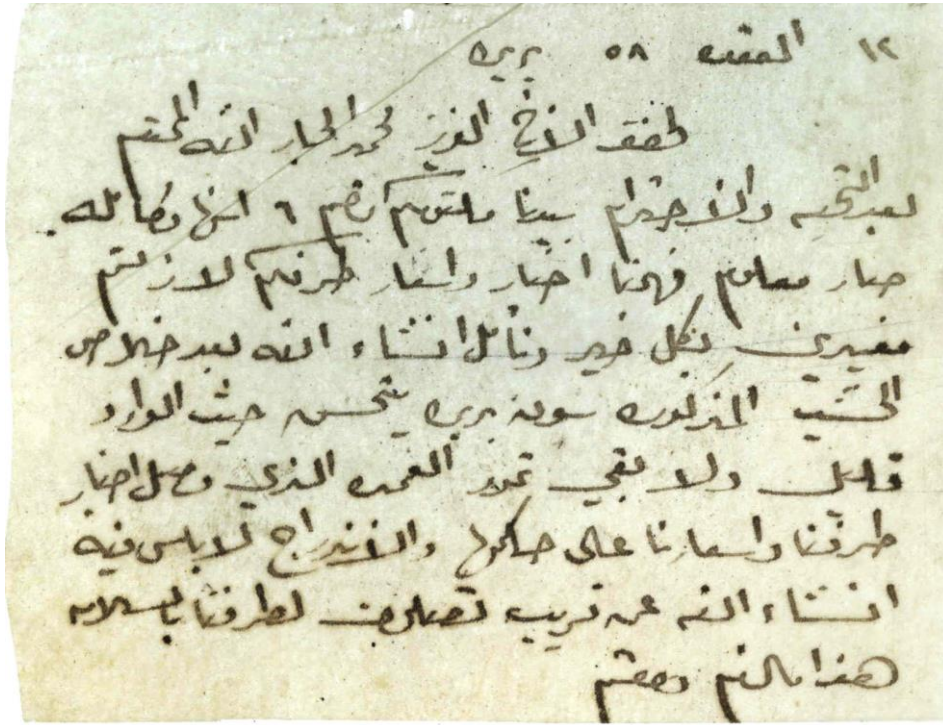 ١٢ القعده ٥٨ بريده
لحضرة الأخ العزيز محمد الجار الله المحترم
بعد التحيه والاحترام بيدنا ملتوبكم رقم ٦ الها وكامله
صار معلوم فهمنا اخبار واسعار طرفكم لازلتم
مفيدين بكل خير ونأمل انشاء الله بعد خلاص
المذكوره سوق بريده يتحسن حيث الوارد
قليل ولا بقي الذي وصل اخبار
طرفنا واسعارنا على والاندراج لاباس فيه
انشاء الله عن قريب لطرفنا بالسلامه
هذا مالزم ودمتم